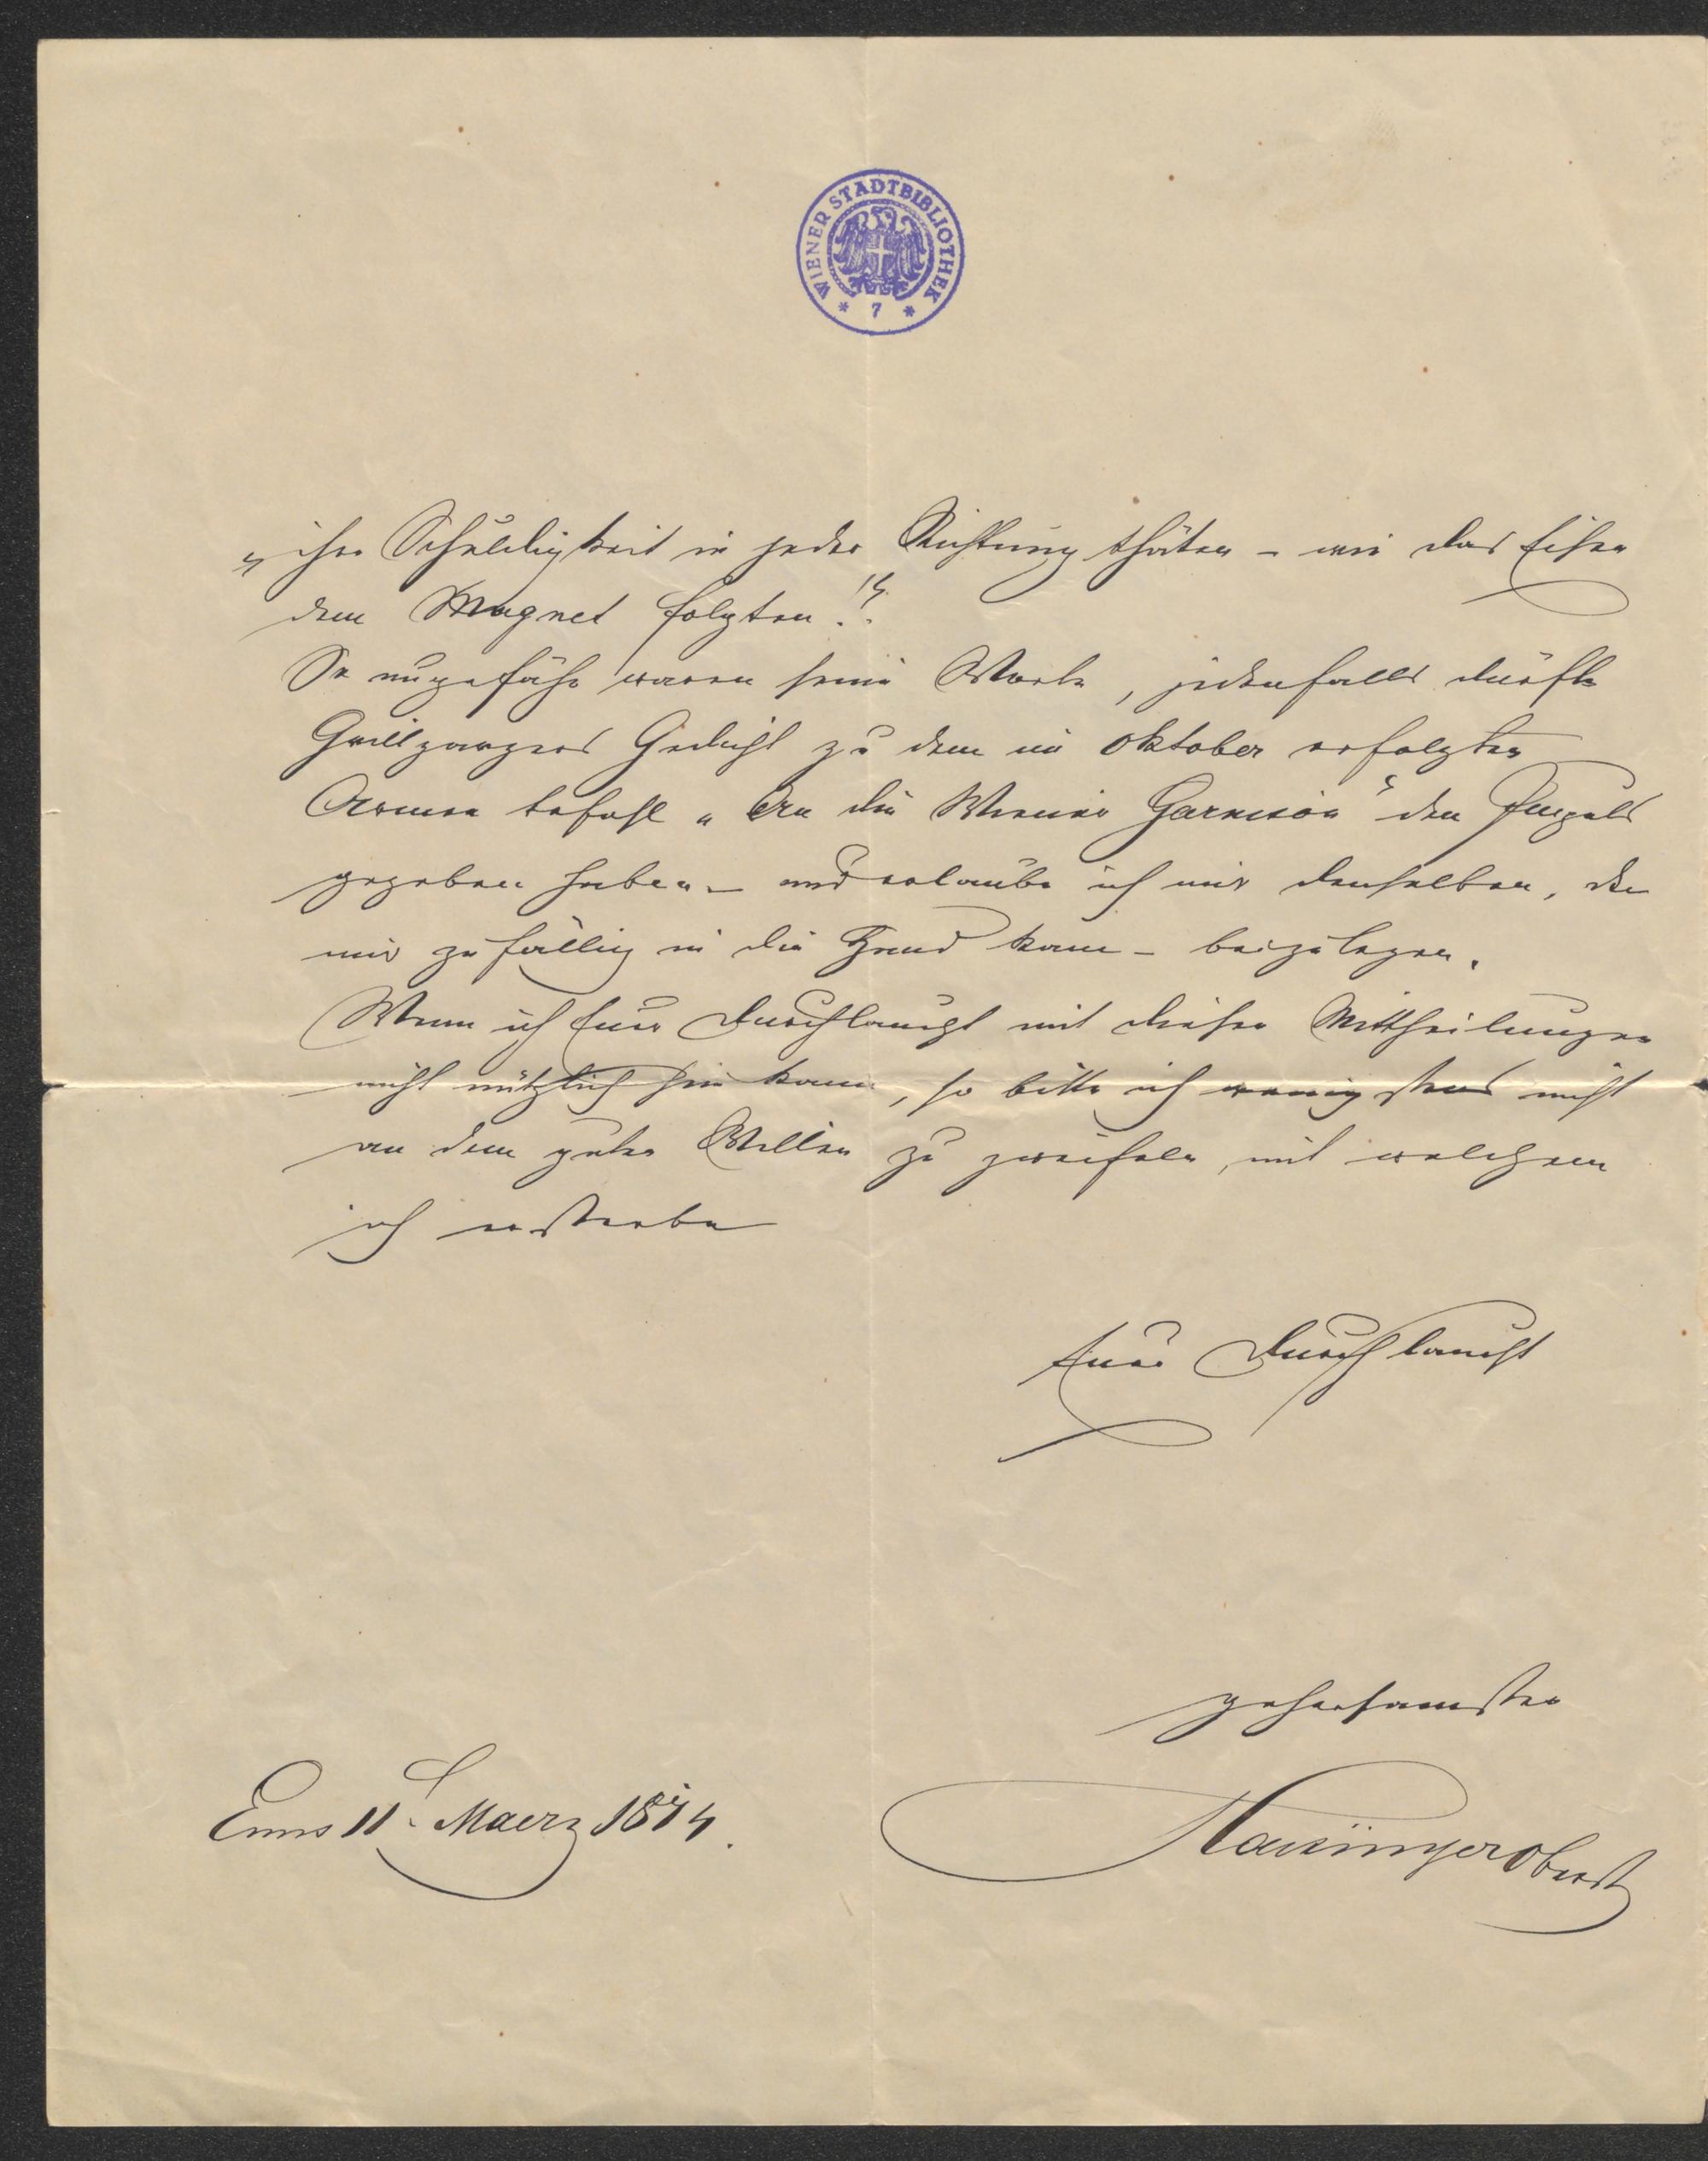 WIENER STADTBIBLIOTHEK
* 7 *
„ihre Schuldigkeit in jeder Richtung thäten – wie das Eisen
dem Magnet folgten!“.
So ungefähr waren seine Worte, jedenfalls dürfte
Grillparzers Gedicht zu dem im Oktober erfolgten
Armee befehl „An die Wiener Garnison“ den Impuls
gegeben haben – und erlaube ich mir denselben, der
mir zufällig in die Hand kam – beizulegen.
Wenn ich Euer Durchlaucht mit diesen Mittheilungen
nicht nützlich sein kann, so bitte ich wenigstens nicht
an dem guten Willen zu zweifeln, mit welchem
ich ersterbe
Euer Durchlaucht
gehorsamster
Enns 11. Maerz 1874.
Oberst